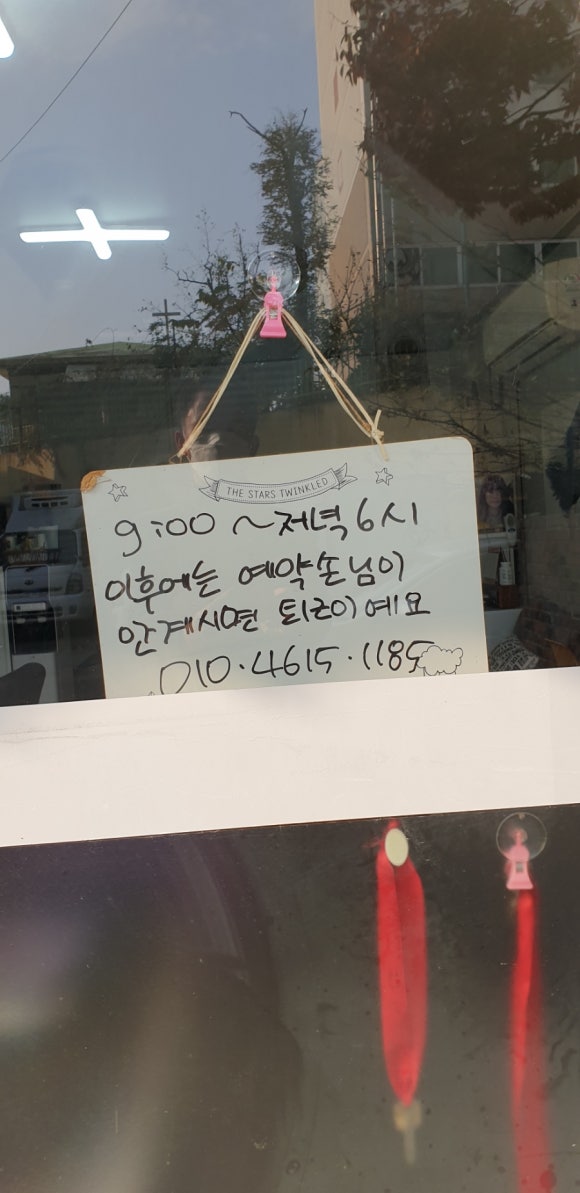 THE STARS TWINKLED
9:00 ~ 저녁 6시
이후에는 예약손님이
안계시면 퇴근이예요
010·4615·1185